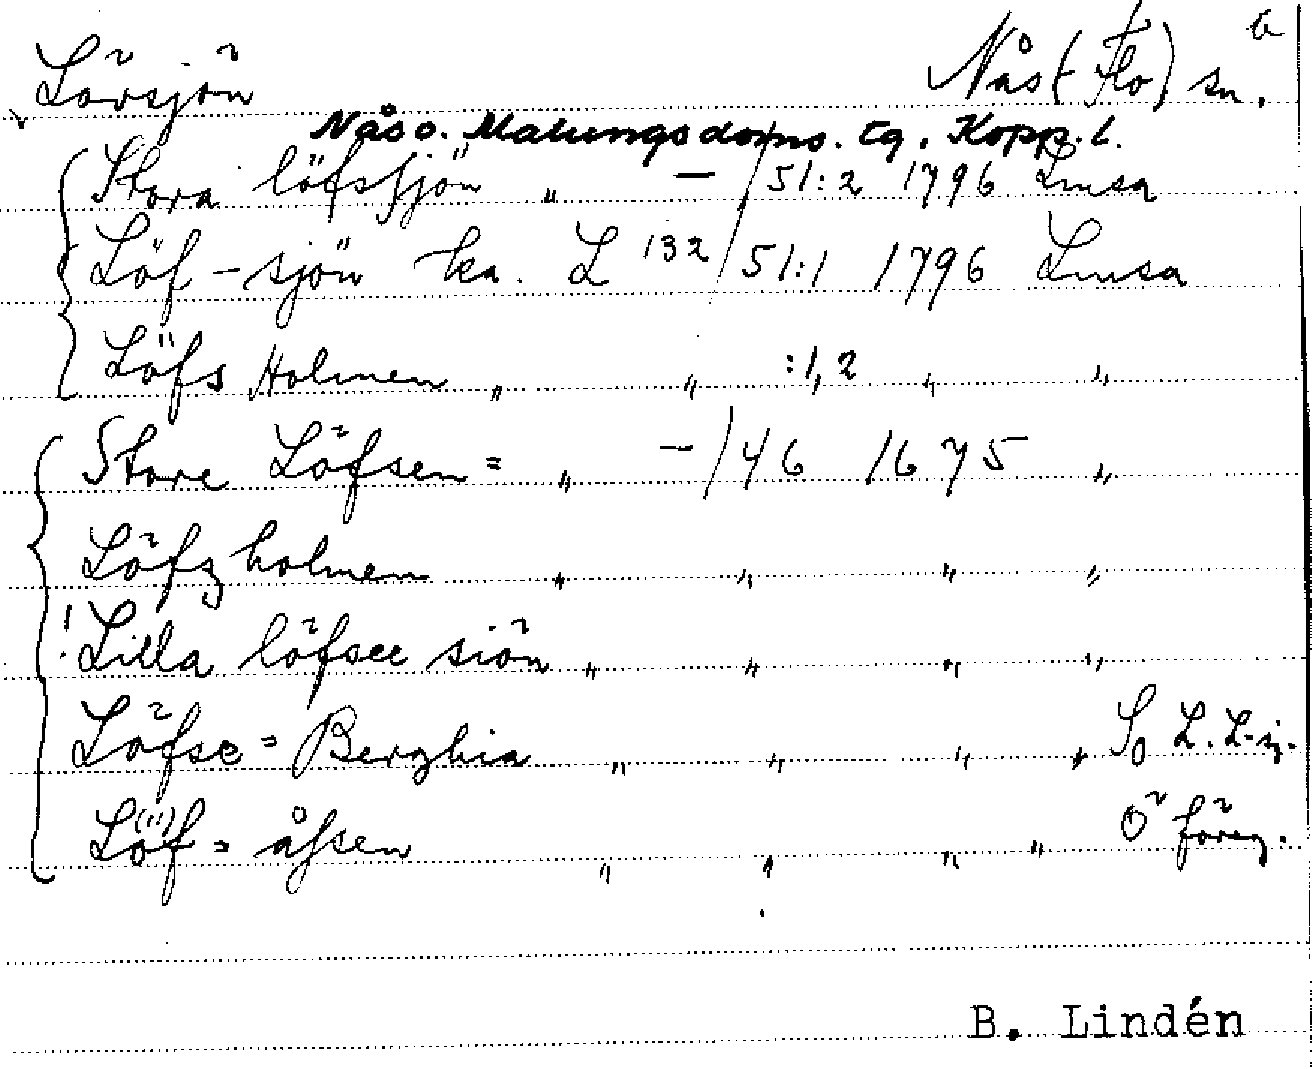 Lövsjön Nås (Flo) sn. b
Nås o. Malungs doms. tg. Kopp. l.
Stora löfssjön " — / 51:2 1796 Lmsa
Löf - sjön ka. L 132 / 51:1 1796 Lmsa
Löfs Holmen " " :1,2 " "
Store Löfsen = " — / 46 1675 "
Löfzholmen " " " "
! Lilla löfsee siön " " " "
Löfse = Berghia " " " " So L. L-sj.
Lö(")f = åssen " " " " O föreg.
B. Lindén